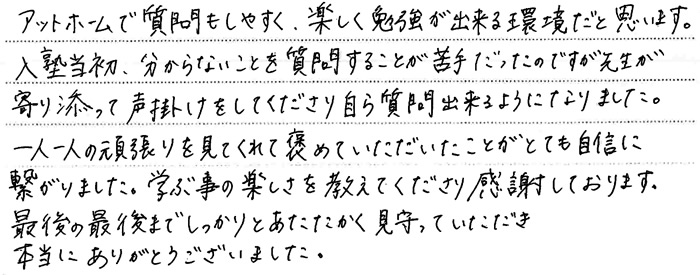 アットホームで質問もしやすく、楽しく勉強が出来る環境だと思います。
入塾当初、分からないことを質問することが苦手だったのですが先生が
寄り添って声掛けをしてくださり自ら質問出来るようになりました。
一人一人の頑張りを見てくれて褒めていただいたことがとても自信に
繋がりました。学ぶ事の楽しさを教えてくださり感謝しております。
最後の最後までしっかりとあたたかく見守っていただき
本当にありがとうございました。